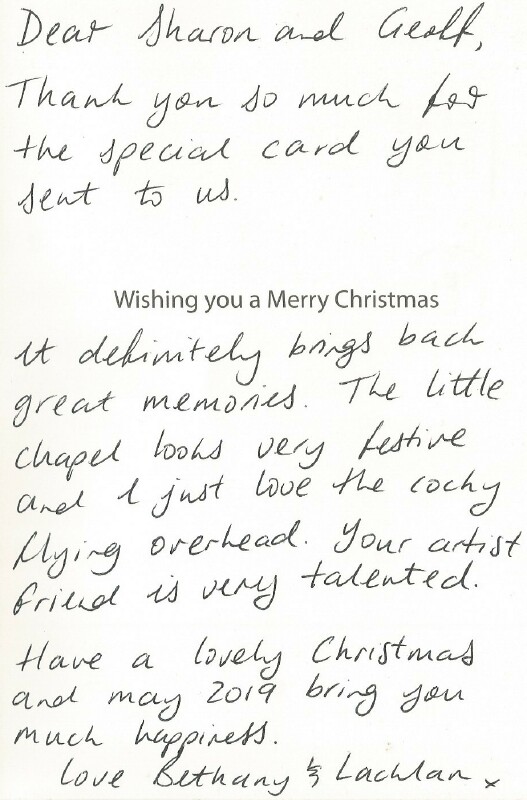 Dear Sharon and Geoff,
Thank you so much for
the special card you
sent to us.
Wishing you a Merry Christmas
It definitely brings back
great memories. The little
chapel looks very festive
and I just love the cocky
flying overhead. Your artist
friend is very talented.
Have a lovely Christmas
and may 2019 bring you
much happiness.
love Bethany & Lachlan x